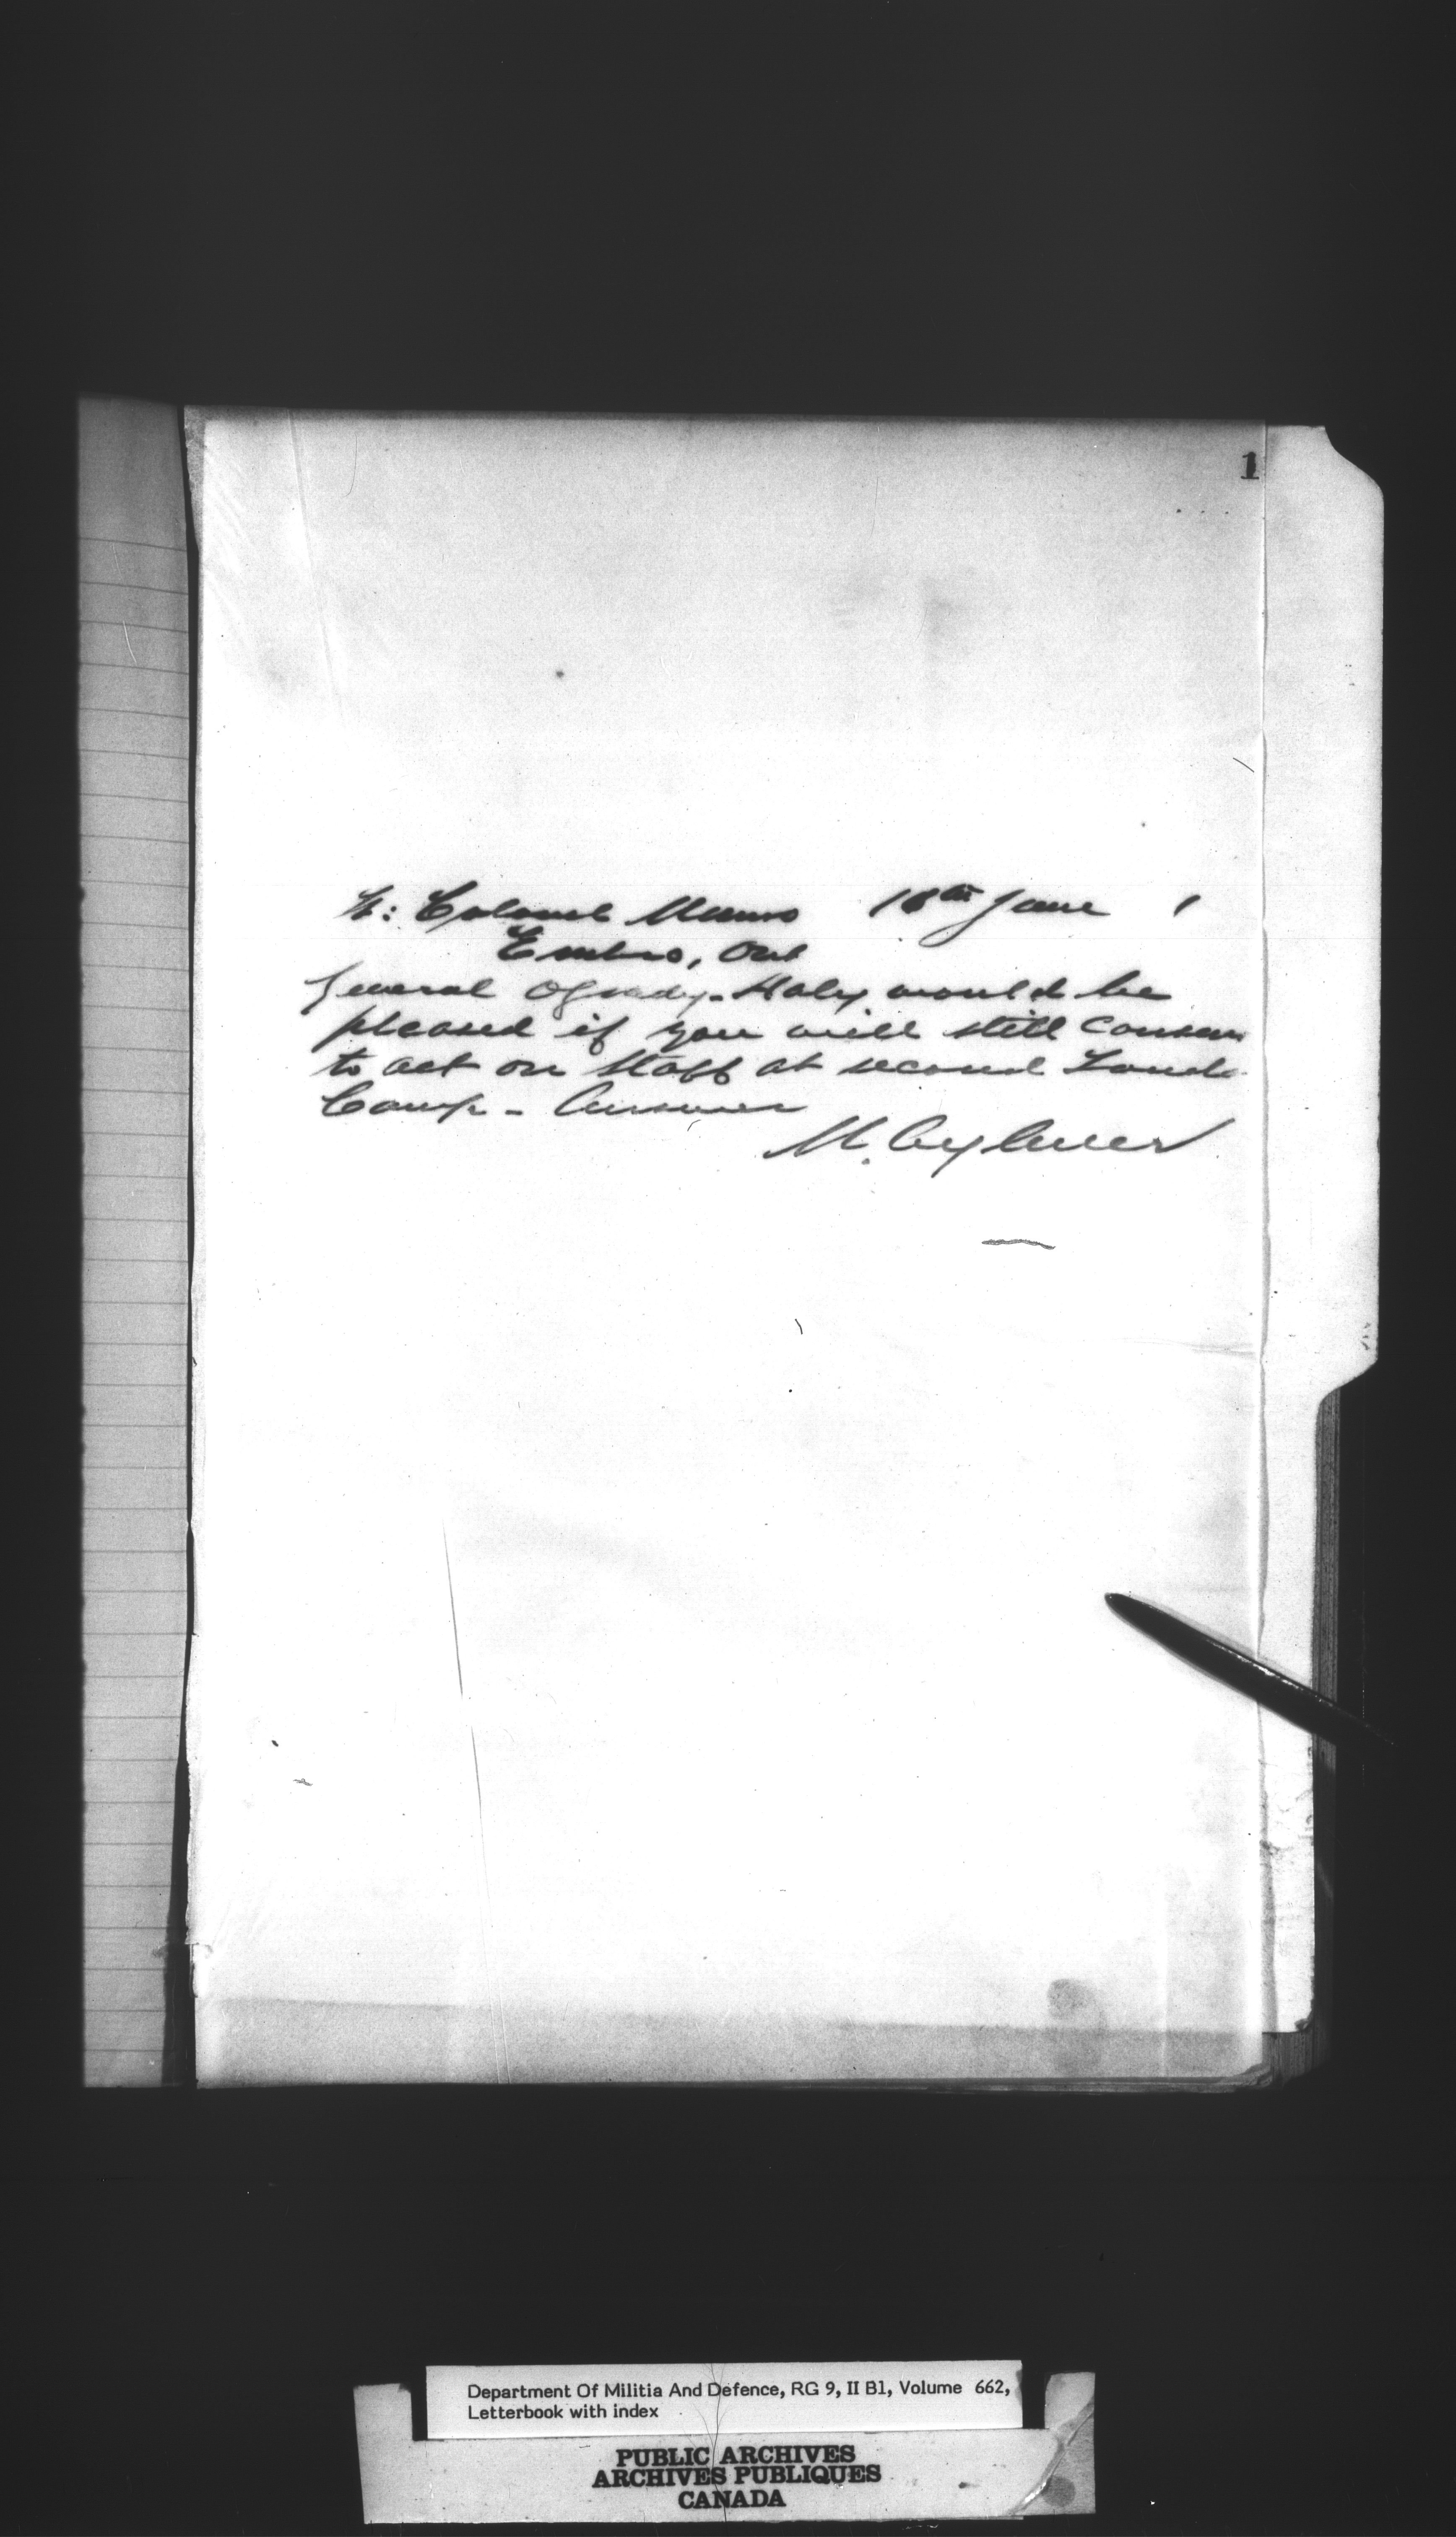 1
Lt: Colonel Munro 18th June 1
Embro, Ont
General OGrady-Haly would be
pleased if you will still consen
to act on Staff at second Lond
Camp - Answer
M. Aylmer
Department Of Militia And Defence, RG 9, II B1, Volume 662,
Letterbook with index
PUBLIC ARCHIVES
ARCHIVES PUBLIQUES
CANADA